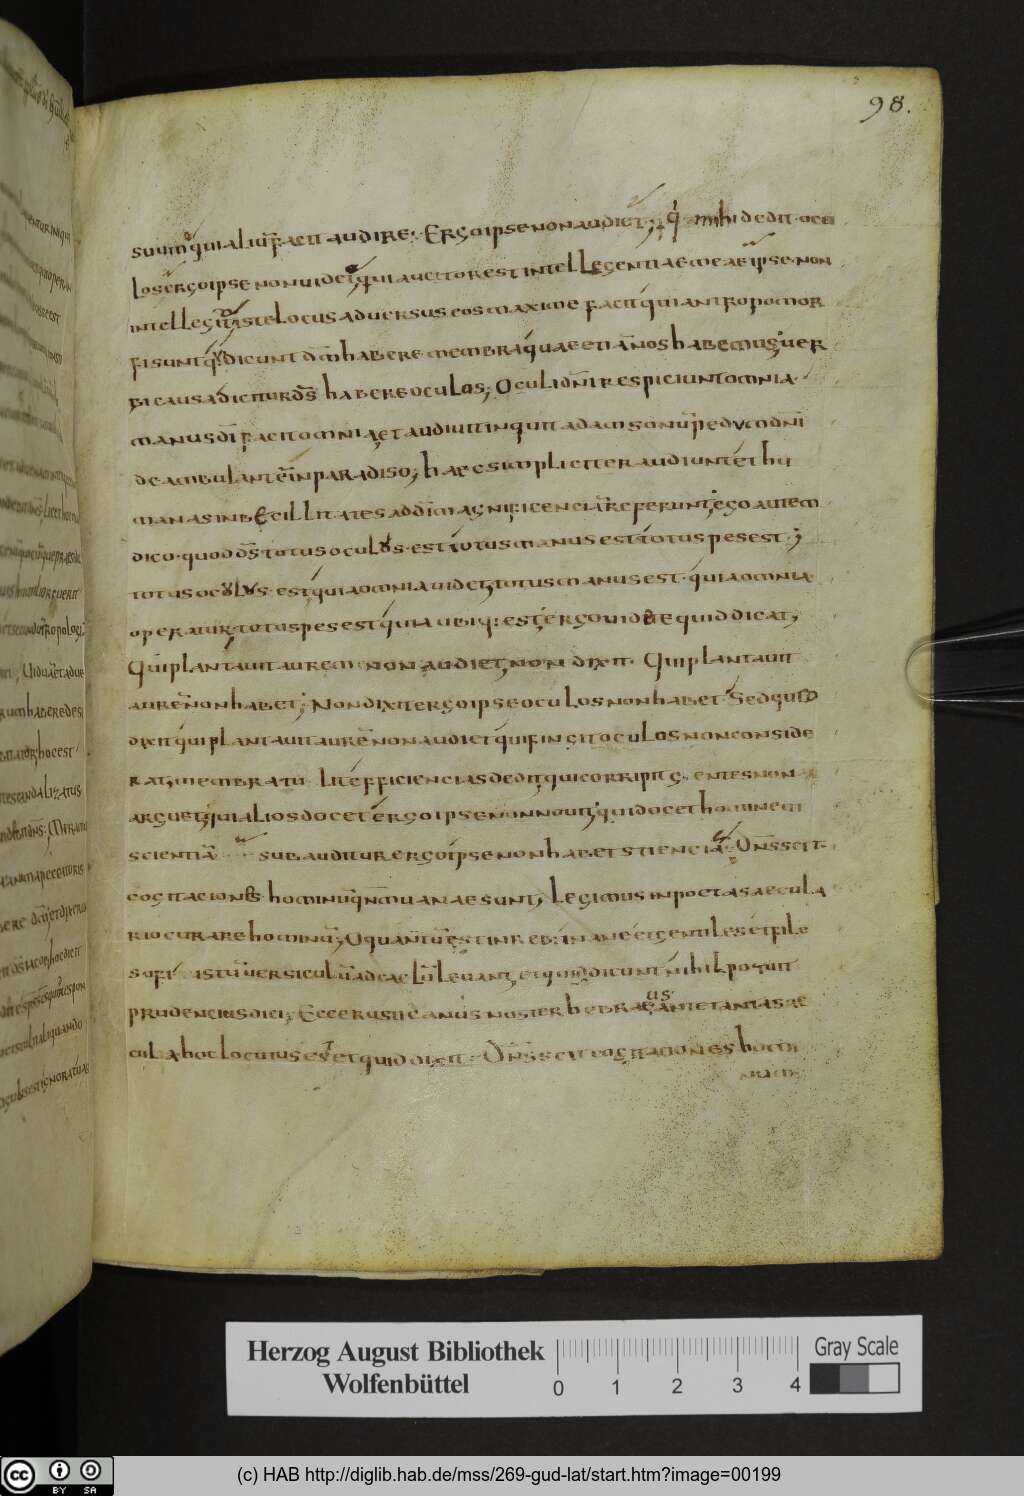 98.
suum qui aliū facit audire; Ergo ipse non audiet; q̇ mihi dedit ocu
los ergo ipse non uidet; qui auctor est intellegentiae meae ipse non
intellegit; iste locus aduersus eos maxime facit qui antropomor
fi sunt q̇ dicunt dm̄ habere membra quae etiā nos habemus; uer
bi causa dicitur ds̄ habere oculos; Oculi dn̄i respiciunt omnia.
manus dn̄i facit omnia; et audiuit inquit adam sonū pedum dn̄i
deambulantē in paradiso; haec simpliciter audiunt et hu
manas inbecillitates ad dn̄i magnificenciā referunt; ego autem
dico. quod ds̄ totus oculus. est totus manus est totus pes est.
totus oculus. est quia omnia uidet; totus manus est. quia omnia
operatur; totus pes est quia ubiq: est; ergo uidete quid dicat;
Qui plantauit aurem non audiet; non dixit. Qui plantauit
aurē non habet; Non dixit ergo ipse oculos non habet. Sed quid
dixit qui plantauit aurē non audiet qui fingit oculos non conside
rat; membra tu lit efficiencias dedit; qui corripit g entes non
arguet; qui alios docet ergo ipse non nouit; qui docet hominem
scientiā subauditur ergo ipse non habet scienciā. Dns̄ scit
cogitaciones hominū qn̄m uanae sunt; Legimus in poeta saecula
rio curare hominū; O quantū est in reb: inane et gentiles et filo
sofi istū uersiculū ad caelū leuant; et quid dicunt nihil potuit
prudencius dici; Ecce rusticanus noster hebraeus ante tanta sae
cula hoc locutus est et quid dixit. Dns̄ scit cogitaciones homi
num
Herzog August Bibliothek
Wolfenbüttel
0 1 2 3 4
Gray Scale
cc BY SA
(c) HAB http://diglib.hab.de/mss/269-gud-lat/start.htm?image=00199